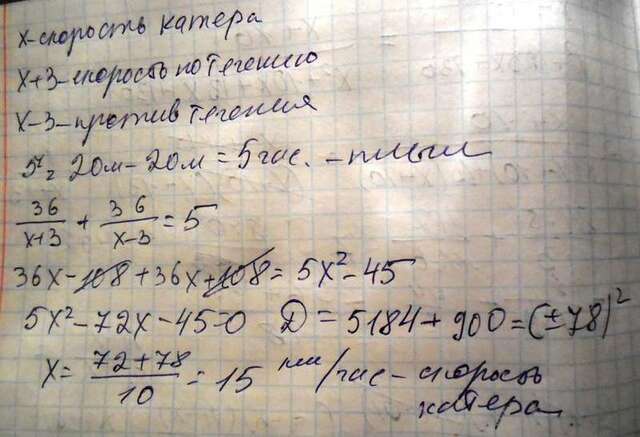 x-скорость катера
x+3-скорость по течению
x-3-против течения
5ч 20м-20м=5час. -плыл
36/x+3 + 36/x-3 = 5
36x-108+36x+108=5x²-45
5x²-72x-45=0 D=5184+900=(±78)²
x= 72+78/10 = 15 км/час-скорость
катера